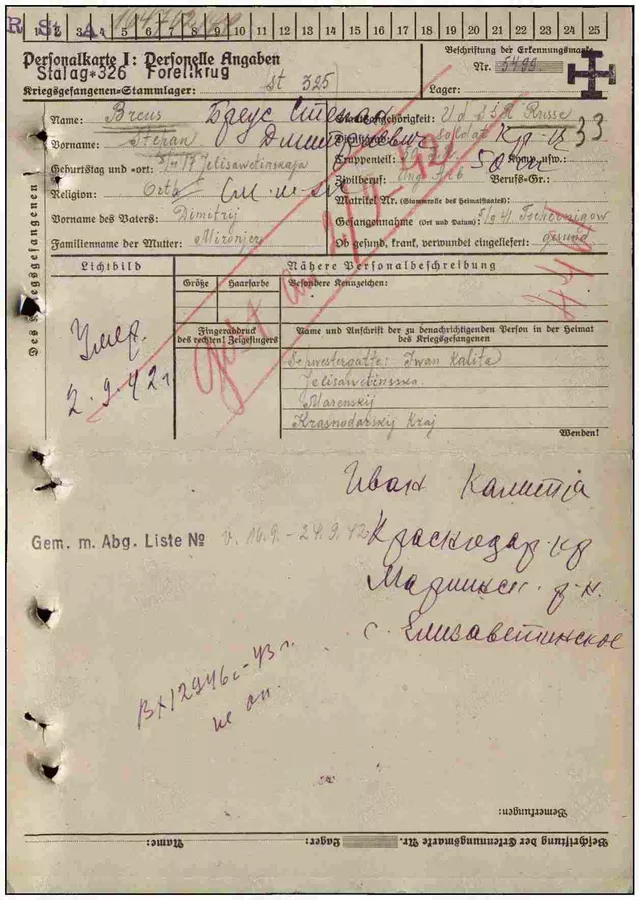 R St A
1 2 3 4 5 6 7 8 9 10 11 12 13 14 15 16 17 18 19 20 21 22 23 24 25
Personalkarte I: Personelle Angaben
Stalag*326 Forellkrug
Kriegsgefangenen-Stammlager: St 325
Beschriftung der Erkennungsmarke
Nr. 5499
Lager:
Des Kriegsgefangenen
Name: Breus
Бреус Степан
Дмитриевич
Vorname: Stefan
Geburtstag und -ort: Jelisawetinskaja
Religion: Orto
Vorname des Vaters: Dimitrij
Familienname der Mutter:
Staatsangehörigkeit: UdSSR Russe
Dienstgrad: Soldat
33
Truppenteil: Komp. usw.:
Zivilberuf: Berufs-Gr.:
Matrikel Nr. (Stammrolle des Heimatstaates)
Gefangennahme (Ort und Datum): Tschernigow
Ob gesund, krank, verwundet eingeliefert: gesund
Lichtbild
Умер.
2.9.42г
Nähere Personalbeschreibung
Größe Haarfarbe Besondere Kennzeichen:
Fingerabdruck
des rechten! Zeigefingers
Name und Anschrift der zu benachrichtigenden Person in der Heimat
des Kriegsgefangenen
Schwestergatte: Iwan Kalita
Jelisawetinsska
Marenskij
Krasnodarskij Kraj
Wenden!
gest. am 2/9-42
Иван Калита
Gem. m. Abg. Liste № v. 16.9. - 24.9.42
Краснодар кр
Маринск. р-н.
с. Елизаветинское
Вх 12946с-43г.
Bemerkungen:
Beschriftung der Erkennungsmarke Nr. Lager: Name: